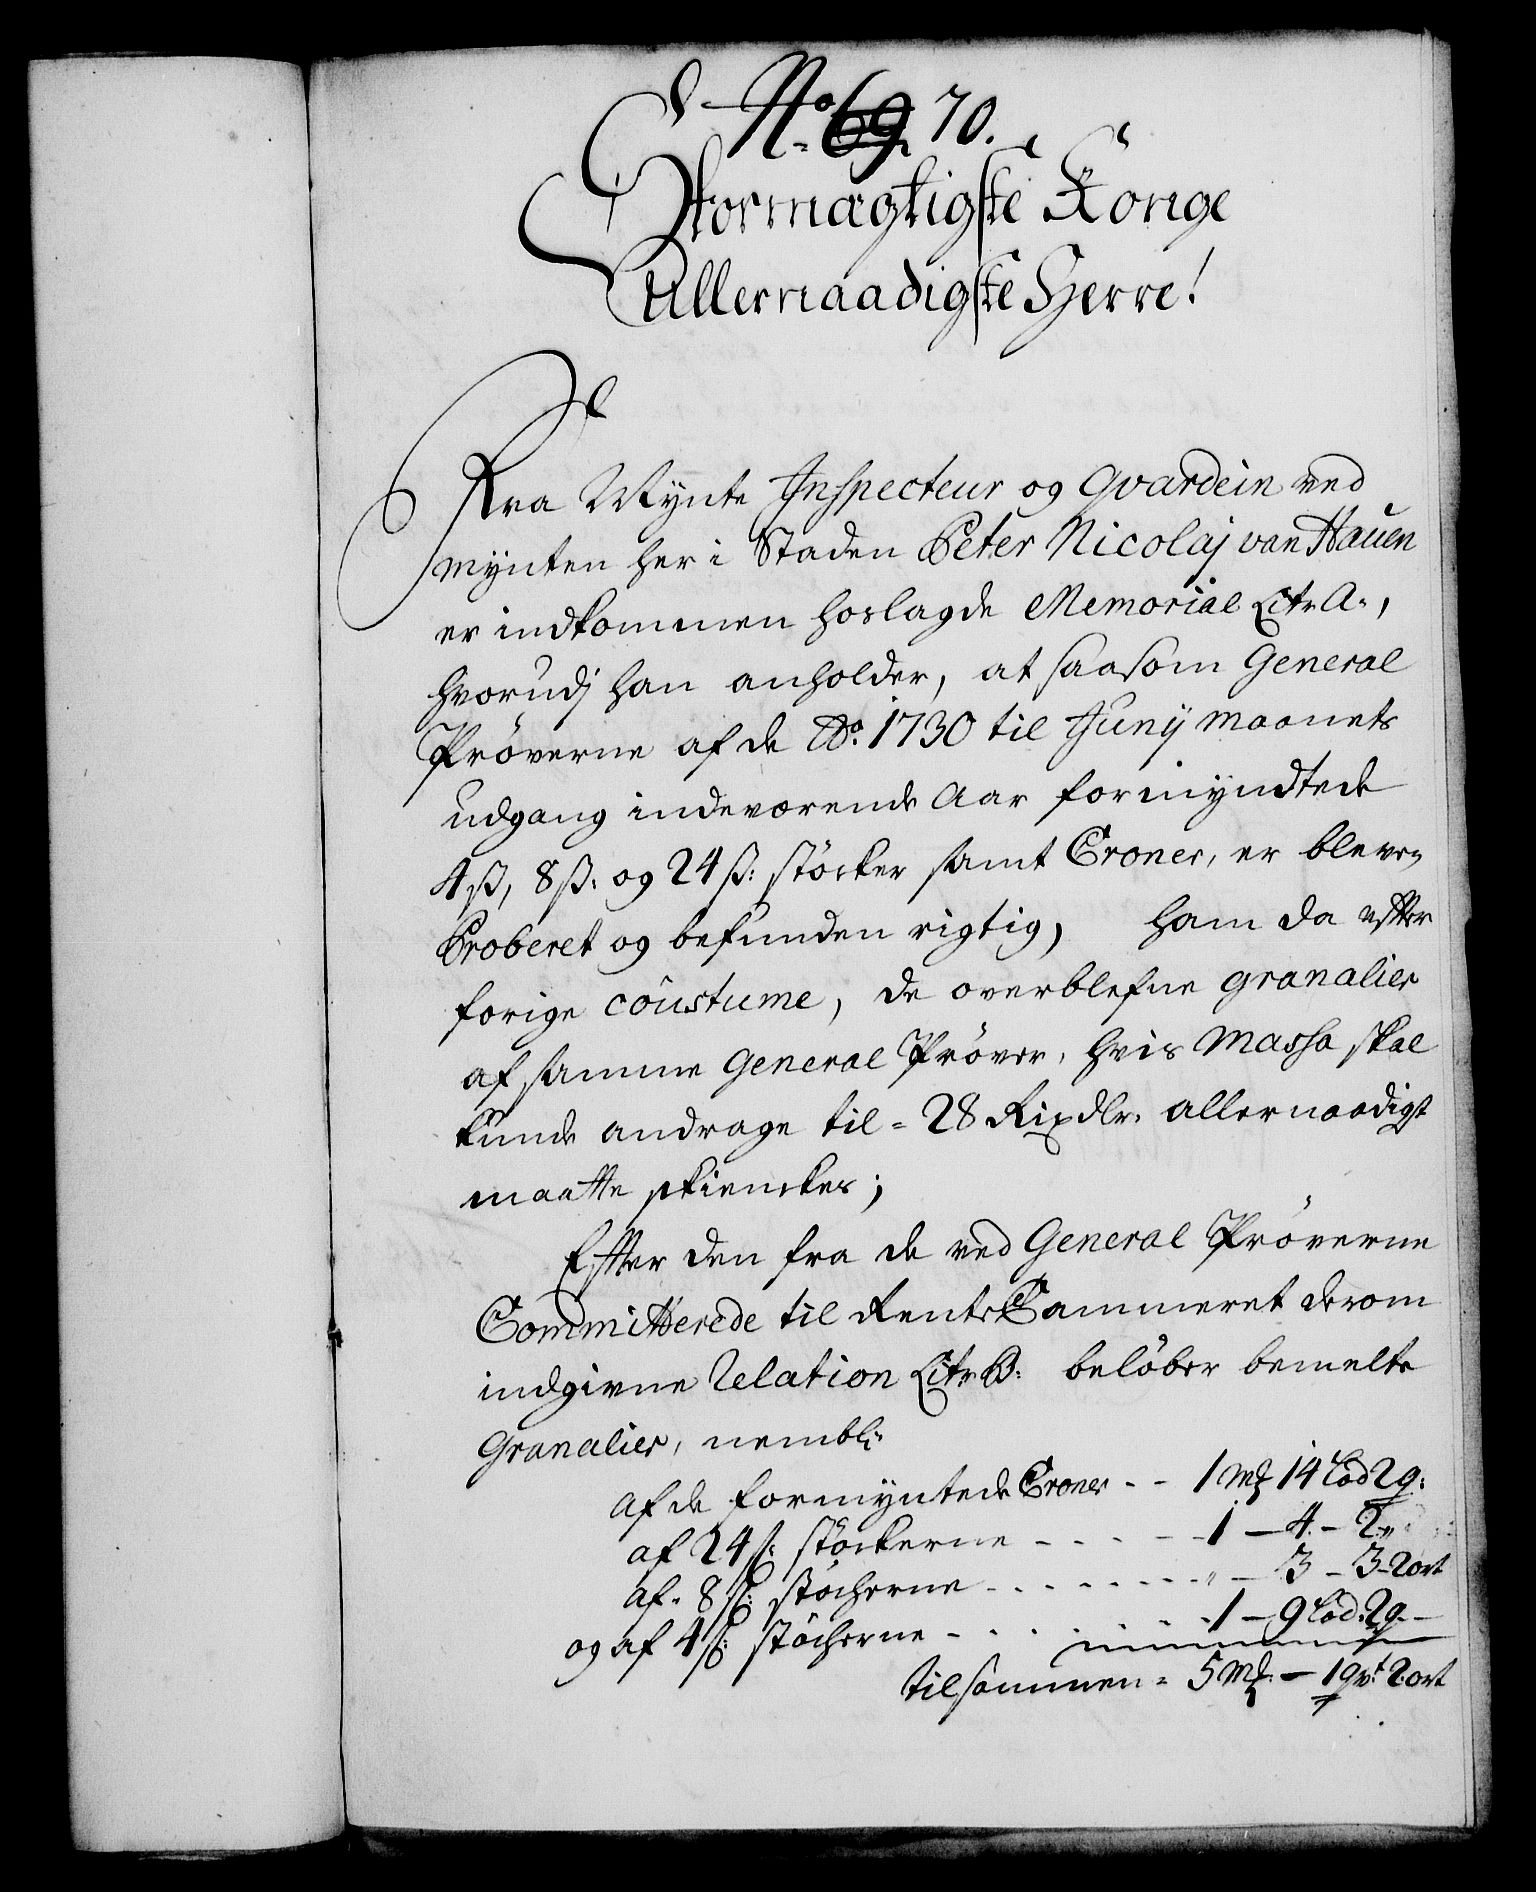 No 69. 70.
Stormægtigste Konge
Allernaadigste Herre!
Fra Mynte Inspecteur og Gvardein ved
Mynten her i Staden Peter Nicolaj van Hauen
er indkommen hoslagde Memorial Litr A.,
hvorudj han anholder, at saasom General
Prøverne af de Ao. 1730 til Junij Maanets
udgang indeværende Aar formyndtede
4 ß, 8 ß. og 24 ß: støcker samt Croner, er bleven
Proberet og befunden rigtig, ham da efter
forige coustume, de overblefne granalier
af samme General Prøver, hvis Massa skal
kunde andrage til = 28 Rixdlr. allernaadigst
maatte skienckes;
Efter den fra de ved General Prøverne
Committerede til RenteCammeret derom
indgivne Relation Litr B: beløber bemelte
Granalier, nembl:
af de formyntede Croner - - 1 Mk 14 Lod 2 q:
af 24 ß: støckerne - - - - - 1 - 4. - 2 "
af. 8 ß: støcherne - - - - - - - " - 3 - 3 - 2 ort
og af 4 ß: støcherne - - - - - - 1 - 9 Lod. 2 q. -
tilsammen = 5 Mk: - 1 qvt: 2. ort